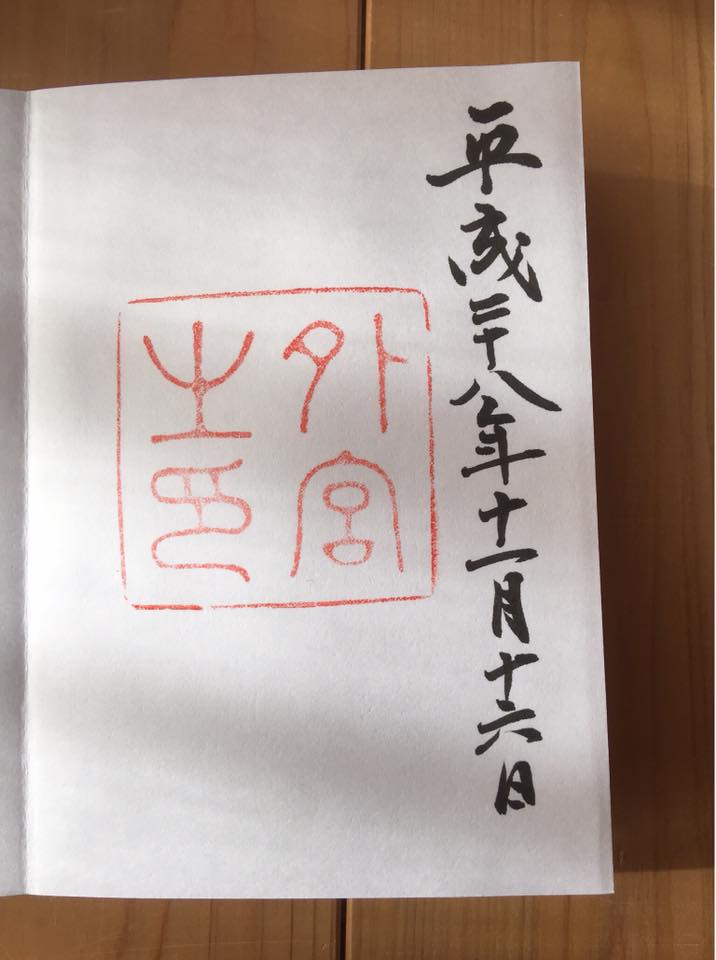 平成二十八年十一月十六日
外宮
之印